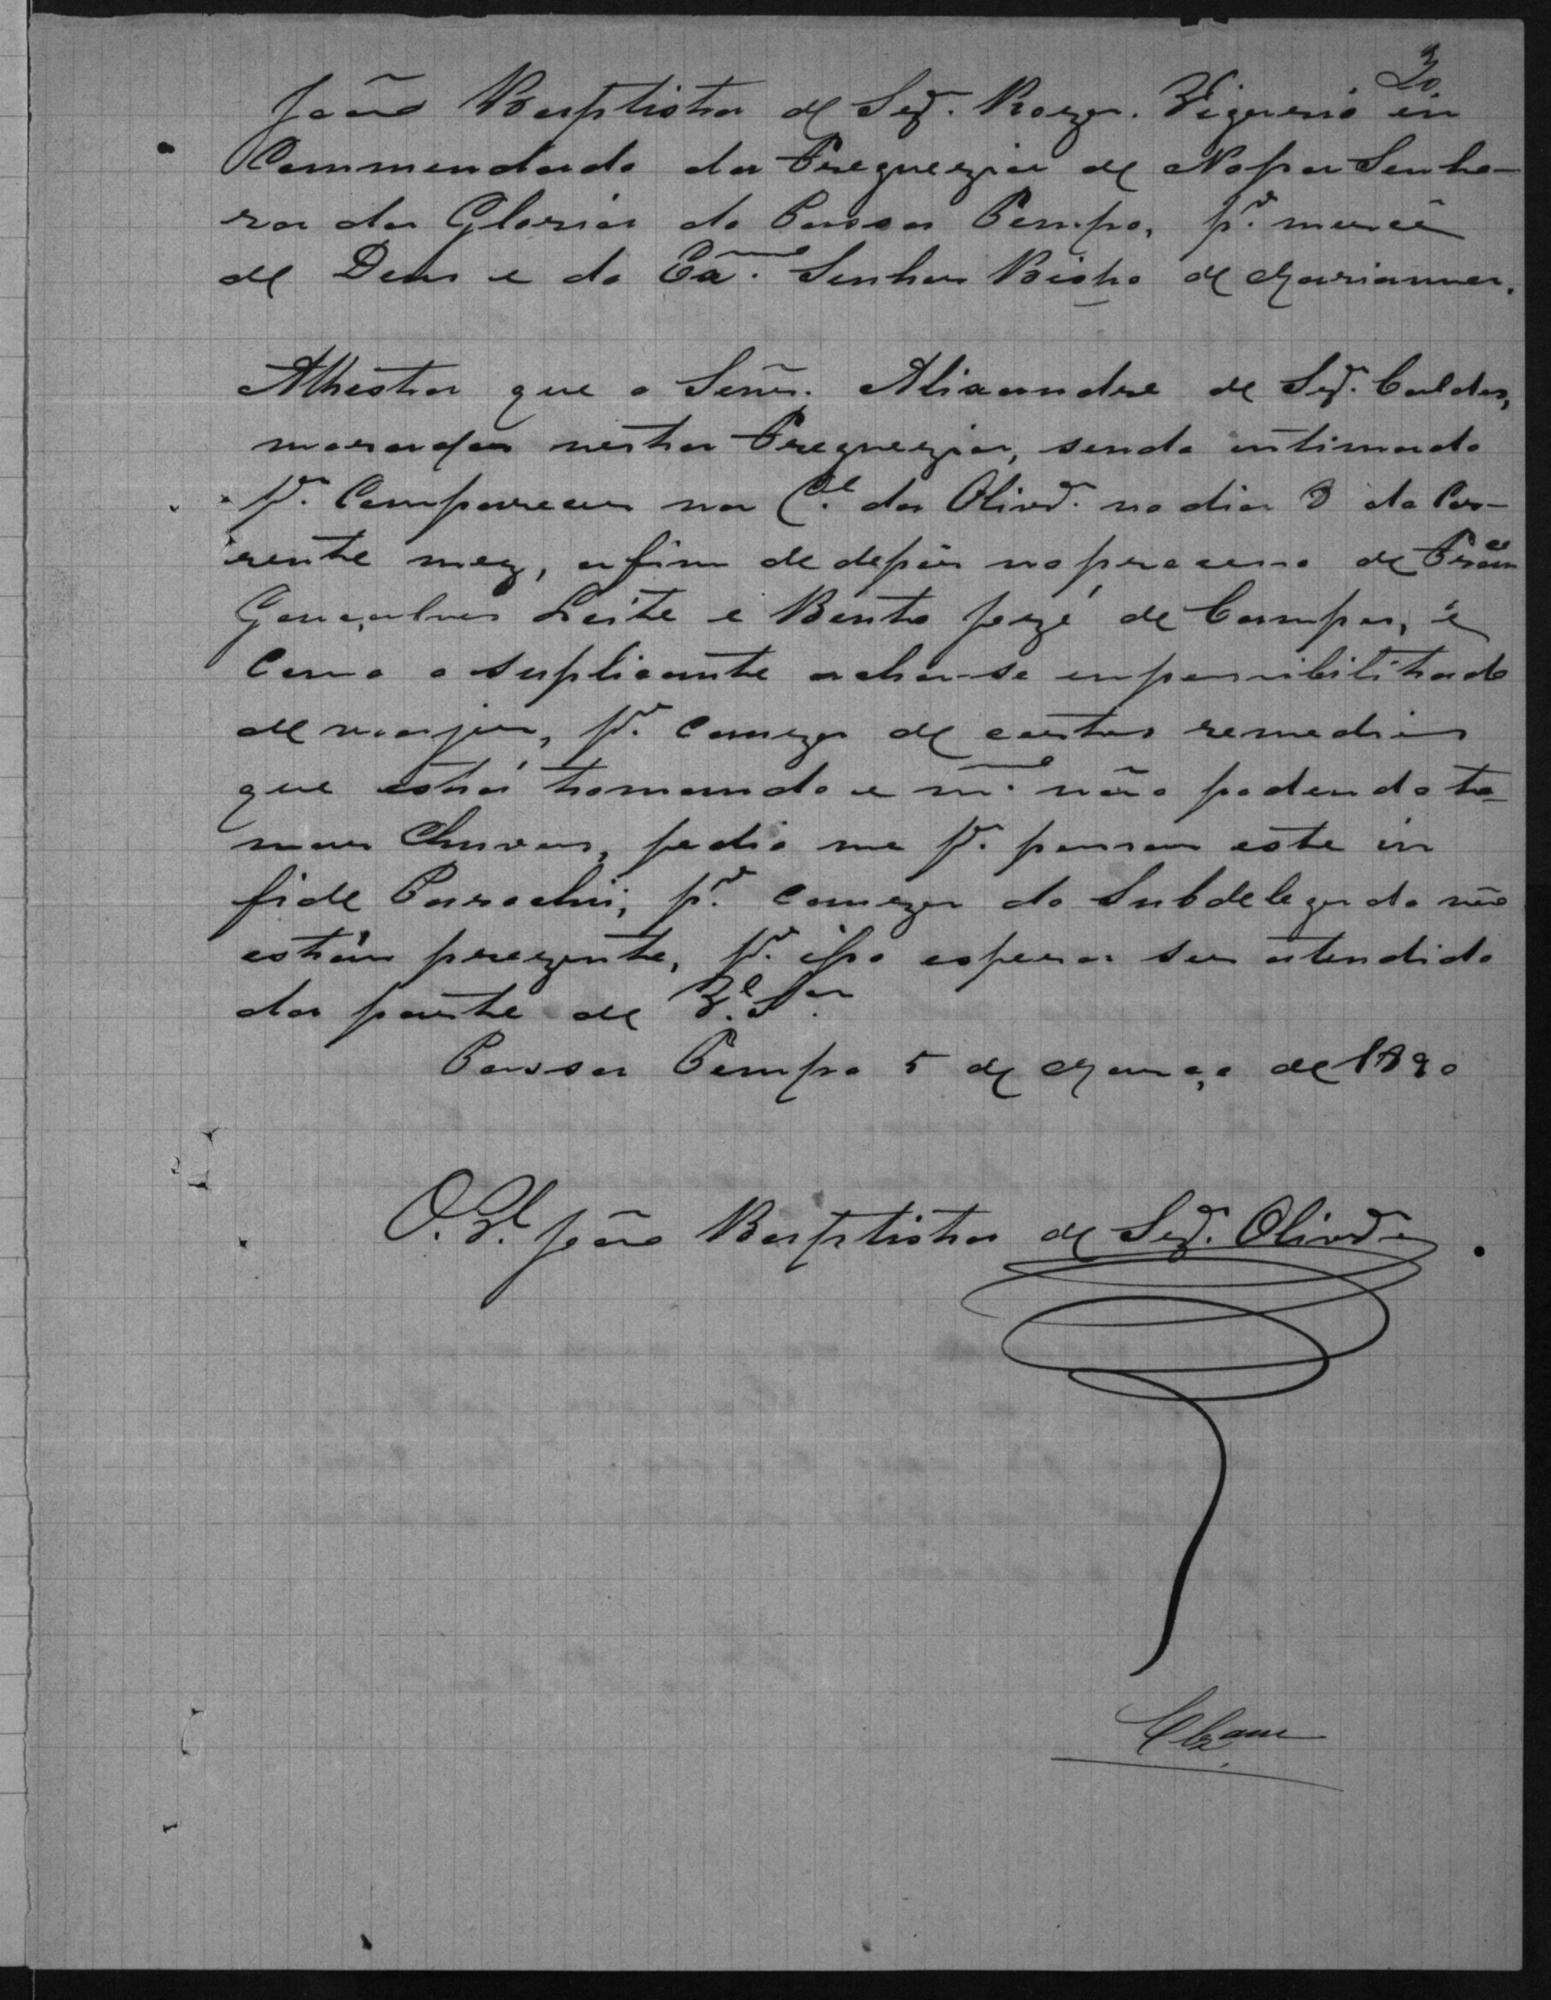 30
João Baptista de Sqr.ª Roza. Vigario in
Commendado da Freguezia de Nossa Senho-
ra da Gloria do Passa Tempo, pr. mercê
de Deus e do Exmº. Senhor Bispo de Marianna.
Attesta que o Senr. Alixandre de Sqr.ª Caldas,
morador nesta Freguezia, sendo intimado
pª. Comparecer na Cª. da Olivrª. no dia 8 do Cor-
rente mez, afim de depôr no processo de Fram
Gonçalves Leite e Bento Jozé de Campos, e
Como o suplicante acha-se impossibilitado
de viajar, pr. Cauza de certos remedios
que está tomando e mmo. não podendo to-
mar Chuvas, pedio me pª. passar este in
fide Parochii, pr. Cauza do Subdelegado não
estár prezente, pr. isso espera ser atendido
da parte de Vª. Sª.
Passa Tempo 5 de Março de 1890
O. Vº. João Baptista de Sqr.ª Olivrª